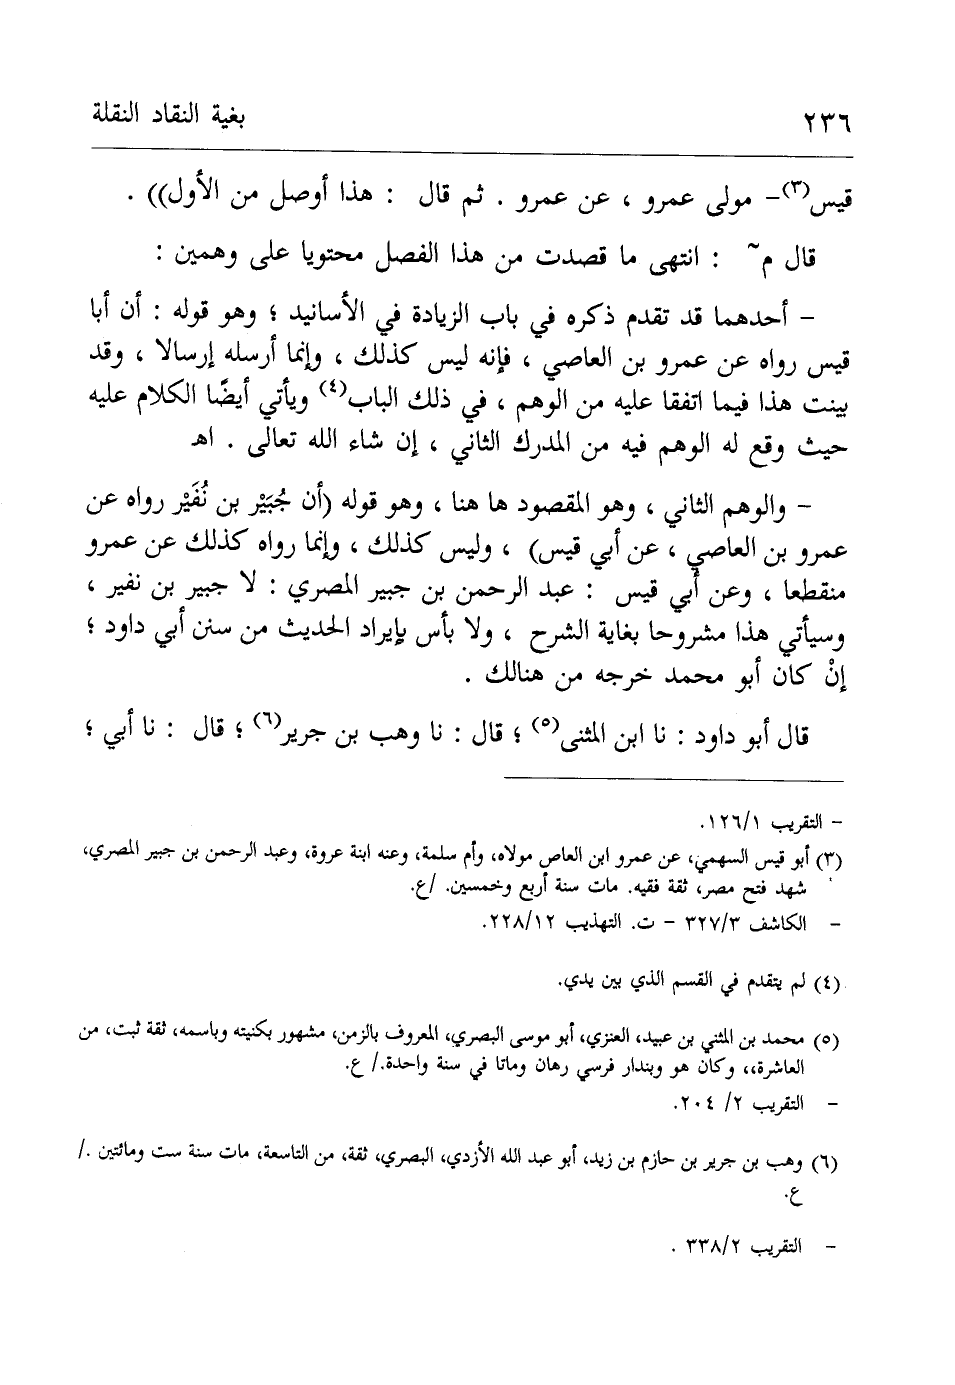 ٢٣٦ بغية النقاد النقلة
قيس(٣)- مولى عمرو ، عن عمرو . ثم قال : هذا أوصل من الأول)) .
قال م~ : انتهى ما قصدت من هذا الفصل محتويا على وهمين :
- أحدهما قد تقدم ذكره في باب الزيادة في الأسانيد ؛ وهو قوله : أن أبا
قيس رواه عن عمرو بن العاصي ، فإنه ليس كذلك ، وإنما أرسله إرسالا ، وقد
بينت هذا فيما اتفقا عليه من الوهم ، في ذلك الباب(٤) ويأتي أيضًا الكلام عليه
حيث وقع له الوهم فيه من المدرك الثاني ، إن شاء الله تعالى . اهـ
- والوهم الثاني ، وهو المقصود ها هنا ، وهو قوله (أن جُبَيْر بن نُفَيْر رواه عن
عمرو بن العاصي ، عن أبي قيس) ، وليس كذلك ، وإنما رواه كذلك عن عمرو
منقطعا ، وعن أبي قيس : عبد الرحمن بن جبير المصري : لا جبير بن نفير ،
وسيأتي هذا مشروحا بغاية الشرح ، ولا بأس بإيراد الحديث من سنن أبي داود ؛
إنْ كان أبو محمد خرجه من هنالك .
قال أبو داود : نا ابن المثنى(٥) ؛ قال : نا وهب بن جرير(٦) ؛ قال : نا أبي ؛
- التقريب ١/١٢٦.
(٣) أبو قيس السهمي، عن عمرو ابن العاص مولاه، وأم سلمة، وعنه ابنة عروة، وعبد الرحمن بن جبير المصري،
شهد فتح مصر، ثقة فقيه. مات سنة أربع وخمسين. /ع.
- الكاشف ٣/٣٢٧ - ت. التهذيب ١٢/٢٢٨.
(٤) لم يتقدم في القسم الذي بين يدي.
(٥) محمد بن المثني بن عبيد، العنزي، أبو موسى البصري، المعروف بالزمن، مشهور بكنيته وباسمه، ثقة ثبت، من
العاشرة،، وكان هو وبندار فرسي رهان وماتا في سنة واحدة./ ع.
- التقريب ٢/ ٢٠٤.
(٦) وهب بن جرير بن حازم بن زيد، أبو عبد الله الأزدي، البصري، ثقة، من التاسعة، مات سنة ست ومائتين ./
ع.
- التقريب ٢/٣٣٨ .